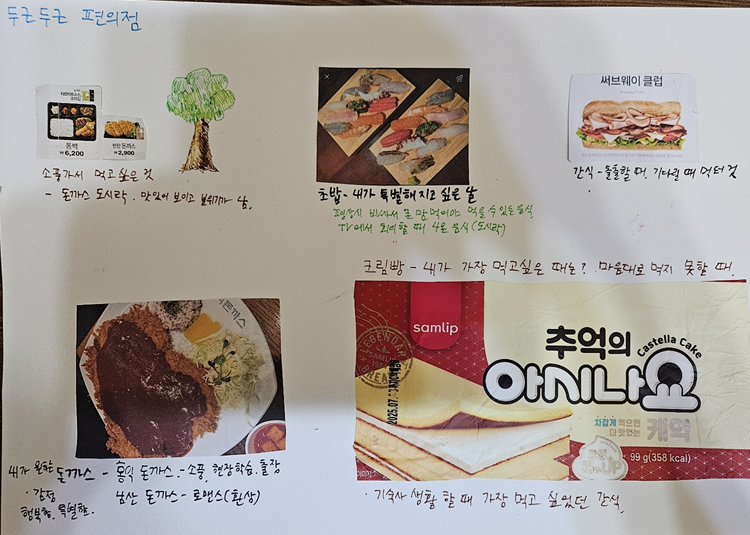 두근두근 편의점
동백
₩6,200
반찬 돈까스
₩2,900
소풍가서 먹고 싶은 것
- 돈까스 도시락. 맛있어 보이고 분위기가 남.
초밥 - 내가 특별해지고 싶은 날
평상시 비싸서 큰 맘 먹어야 먹을 수 있는 음식
TV에서 회의할 때 나온 음식(도시락)
써브웨이 클럽
간식 - 출출할 때, 기다릴 때 먹던 것
크림빵 - 내가 가장 먹고싶은 때는? 마음대로 먹지 못할 때.
돈까스
내가 원한 돈까스 - 홍익 돈까스 - 소풍, 현장학습, 출장
· 감정 남산 돈까스 - 로맨스(환상)
행복함, 특별함.
samlip
추억의
아시나요
Castella Cake
차갑게 먹으면
더 맛있는
케익
UP
99 g(358 kcal)
· 기숙사 생활 할 때 가장 먹고 싶었던 간식.